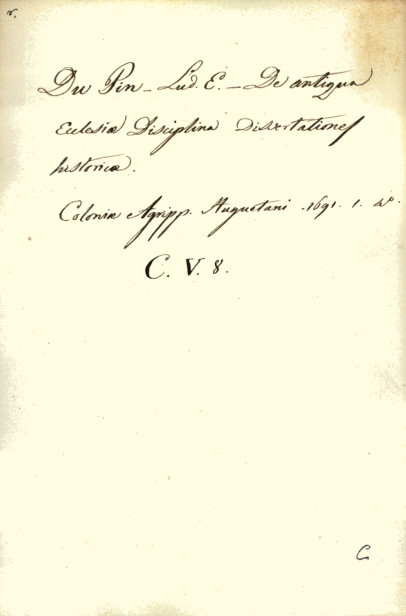 r.
Du Pin – Lud. E. – De antiqua
Eclesiæ Disciplina Dissertationes
historicæ.
Coloniæ Agripp. Huguetani . 1691 . 1. 4º.
C. V. 8.
C